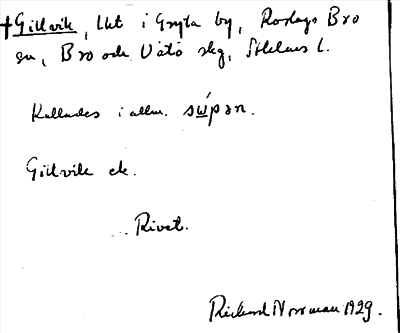 †Gillvik, lht i Gryta by, Roslags Bro
sn, Bro och Vätö skg, Sthlms l.
Kallades i allm. swpən.
Gillvik ek.
Rivet.
Rickard Norrman 1929.